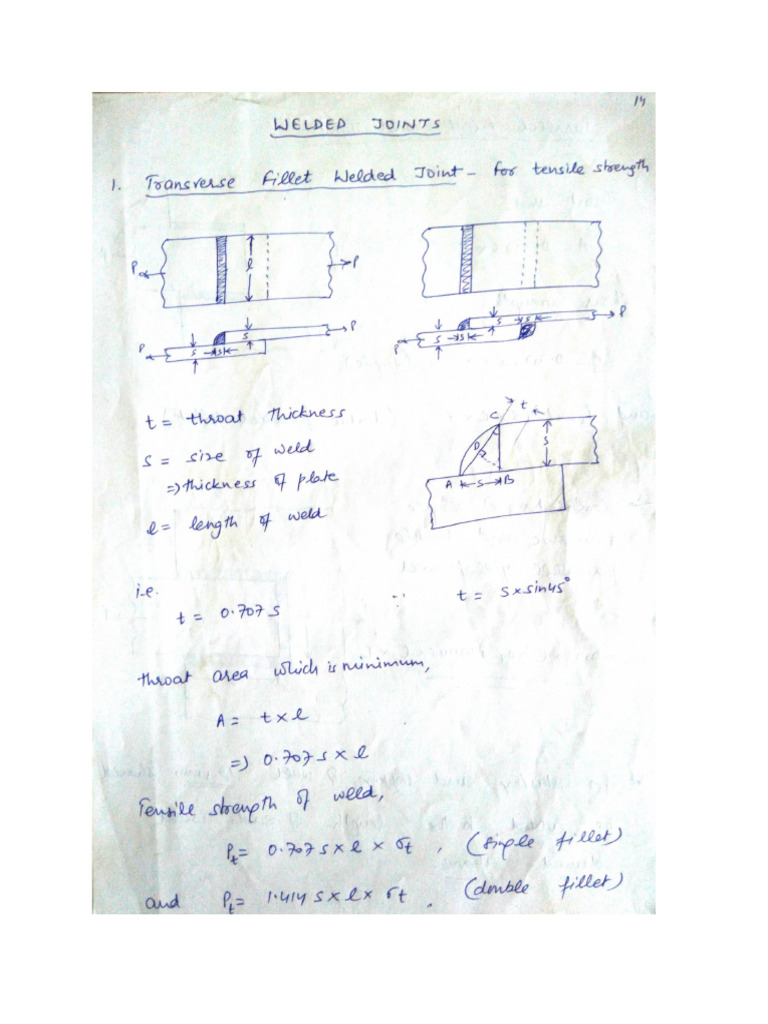 14
WELDED JOINTS
1. Transverse Fillet Welded Joint - for tensile strength
P l P
P s s s P
P s s s s P
t = throat thickness
s = size of weld
=) thickness of plate
l = length of weld
C t
D s
A s B
i.e. ∴ t = s × sin45°
t = 0.707 s
throat area which is minimum,
A = t × l
=) 0.707 s × l
Tensile strength of weld,
Pt = 0.707 s × l × σt , (simple fillet)
and Pt = 1.414 s × l × σt . (double fillet)